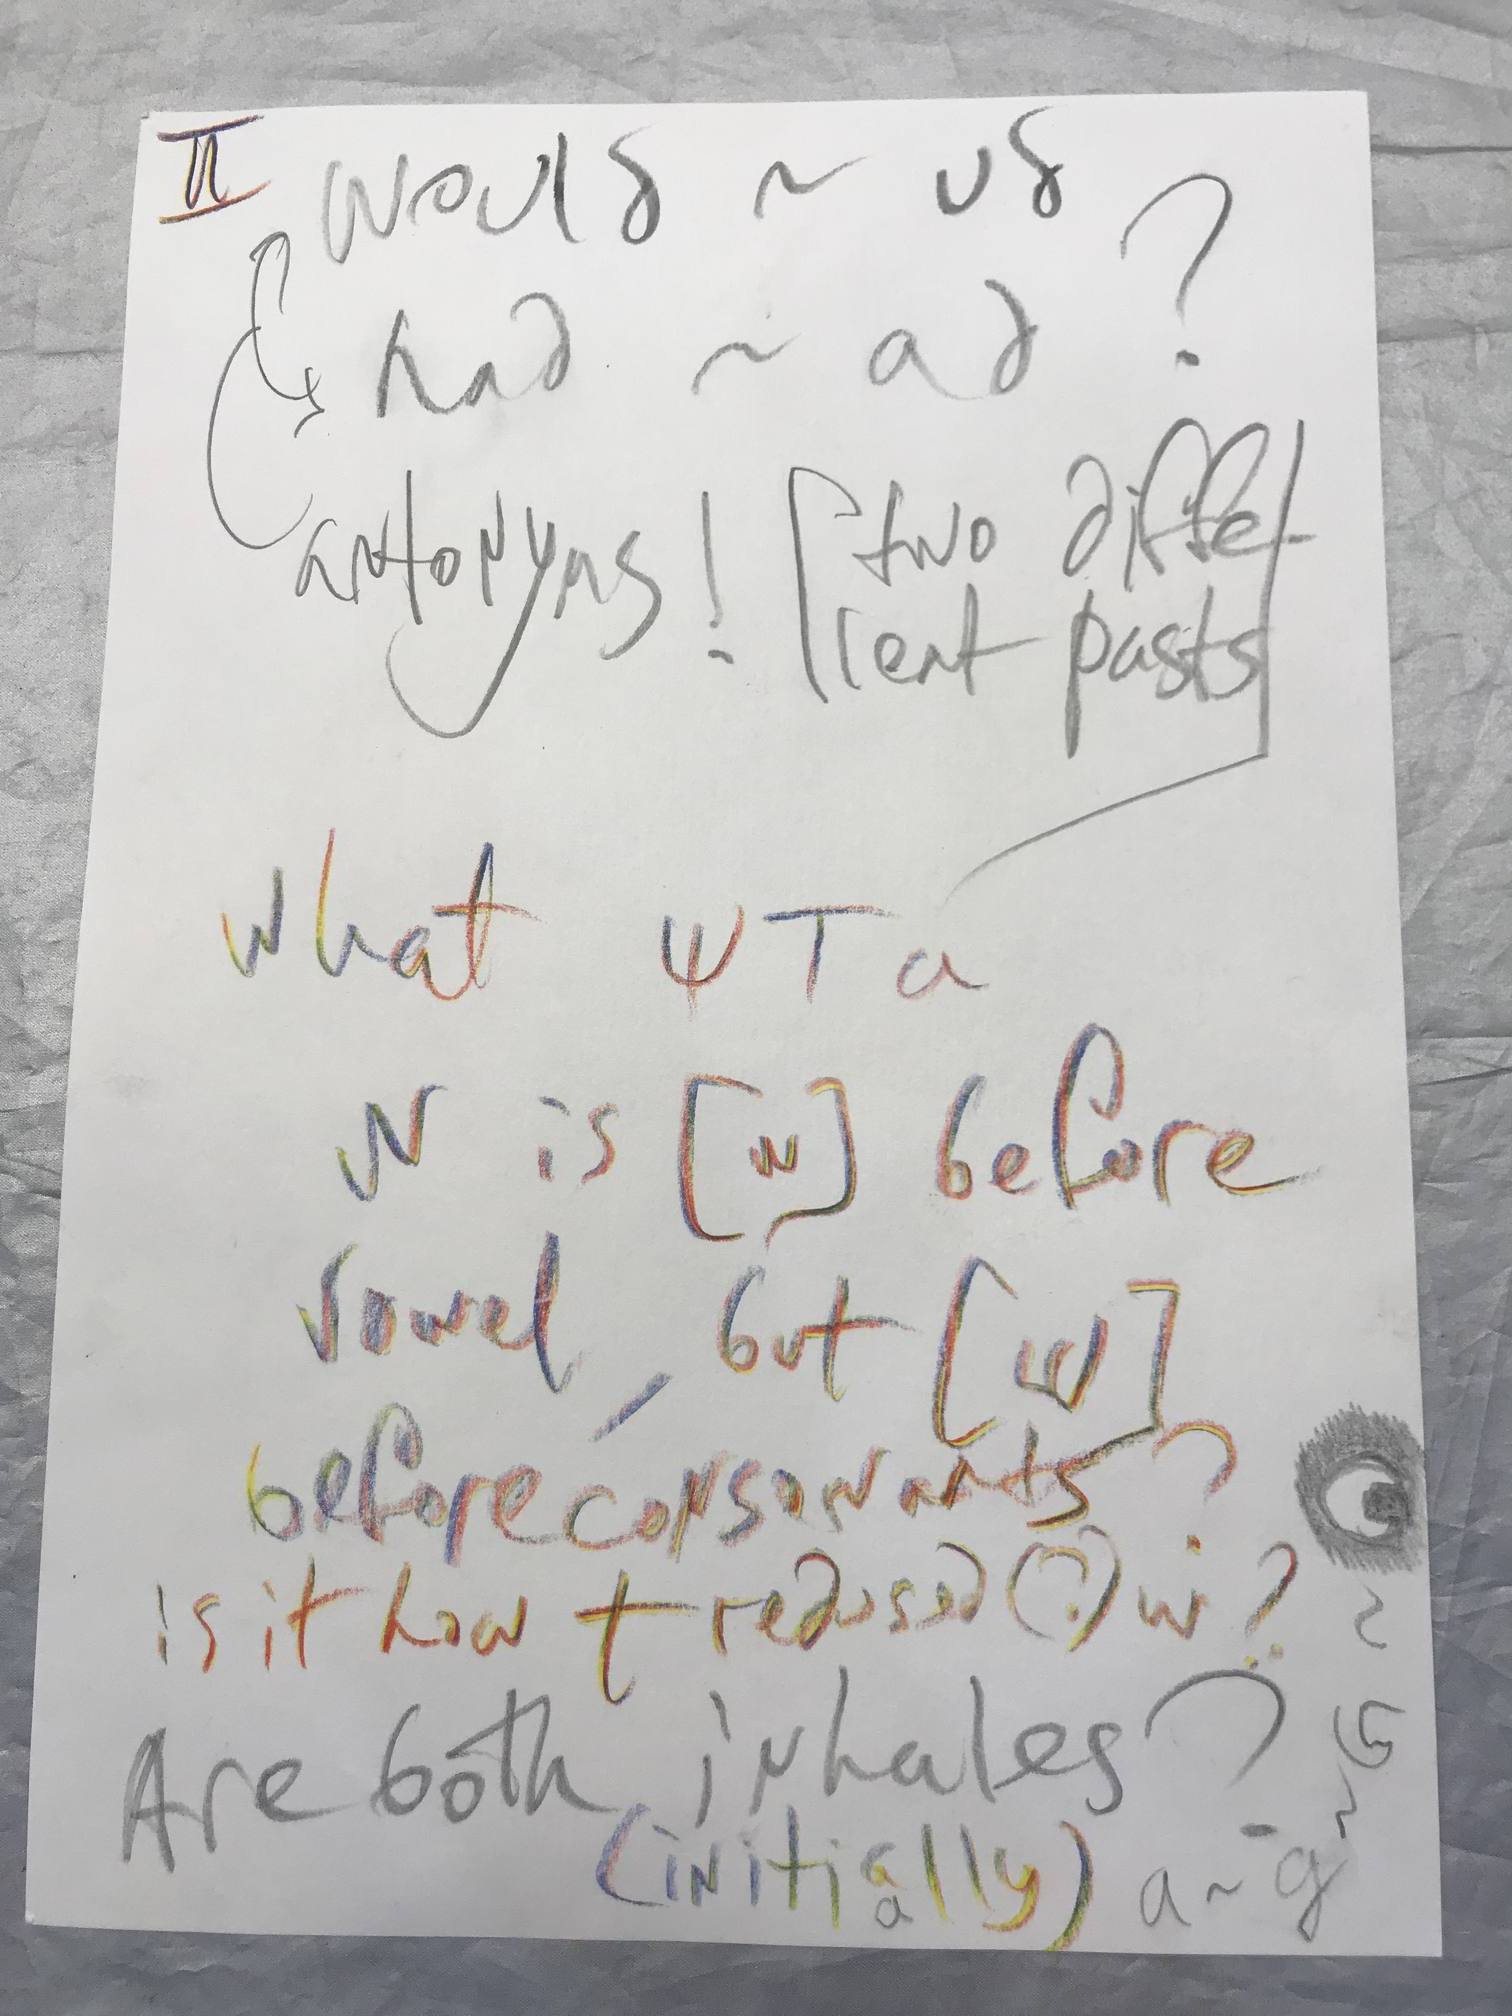 II would ~ ud
had ~ ad ?
antonyms! [two diffe-
rent pasts]
what ψ T a
w is [w] before
vowel, but [ψ]
before consonants?
is it how t redused(?) w?
Are both inhales?
(initially) a ~ g ~ G ~